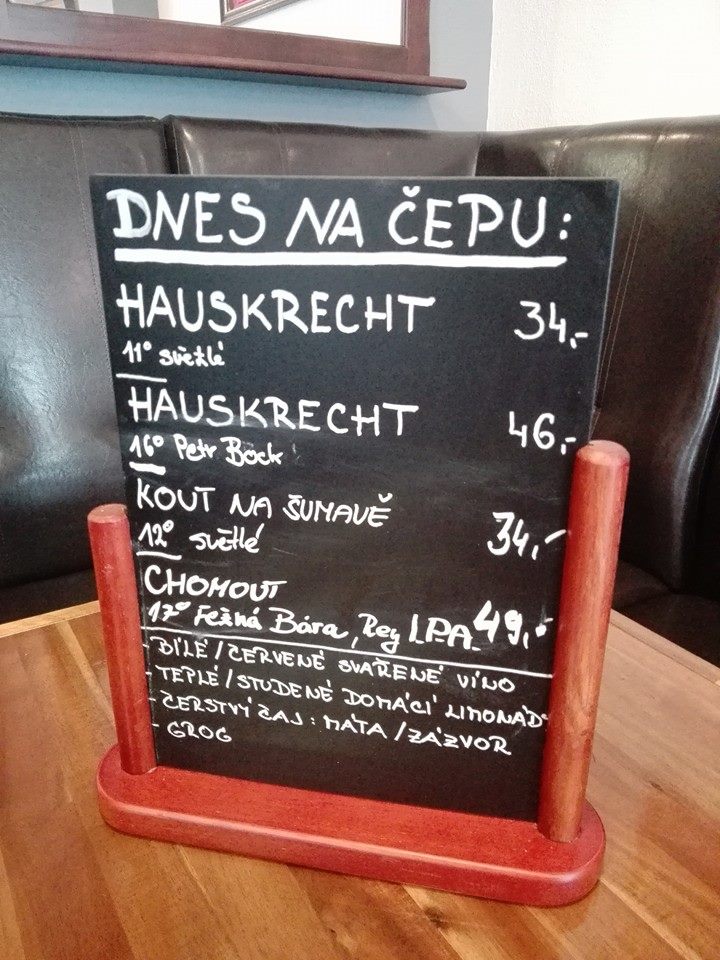 DNES NA ČEPU:
HAUSKRECHT 34,-
11° světlé
HAUSKRECHT 46,-
16° Petr Bock
KOUT NA ŠUMAVĚ
12° světlé 34,-
CHOMOUT
17° Bára, IPA 49,-
- BÍLÉ/ČERVENÉ SVAŘENÉ VÍNO
- TEPLÉ/STUDENÉ DOMÁCÍ LIMONÁD
- ČERSTVÝ ČAJ: MÁTA/ZÁZVOR
- GROG